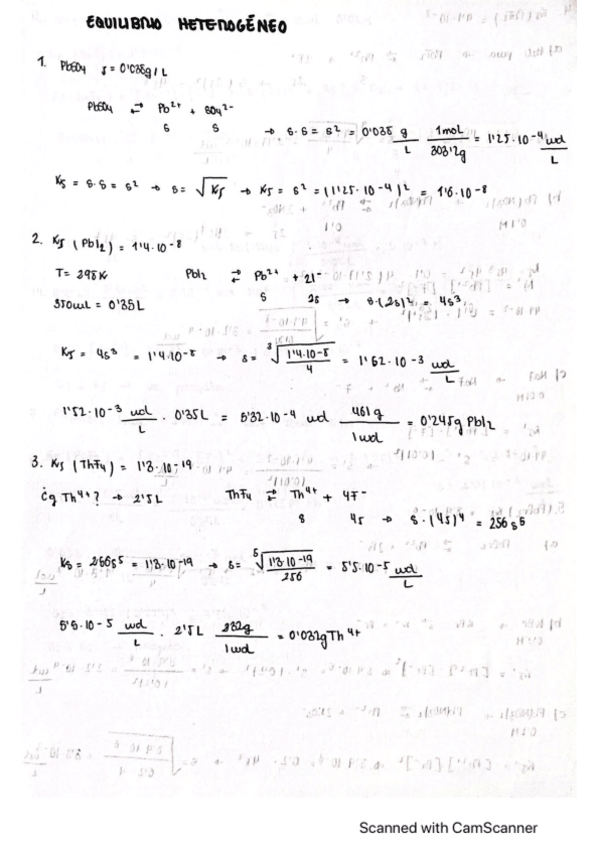 EQUILIBRIO HETEROGÉNEO
1. PbSO4 s = 0'038g/L
PbSO4 ⇄ Pb2+ + SO42-
s s → s·s = s² = 0'038 g/L 1mol/303'2g = 1'25·10-4 mol/L
Ks = s·s = s² → s = √Ks → Ks = s² = (1'25·10-4)² = 1'6·10-8
2. Ks (PbI2) = 1'4·10-8
T = 298K PbI2 ⇄ Pb2+ + 2I-
350ml = 0'35L s 2s → s·(2s)² = 4s³
Ks = 4s³ = 1'4·10-8 → s = ∛(1'4·10-8/4) = 1'52·10-3 mol/L
1'52·10-3 mol/L · 0'35L = 5'32·10-4 mol 461g/1mol = 0'245g PbI2
3. Ks (ThF4) = 1'3·10-19
¿g Th4+? → 2'5L ThF4 ⇄ Th4+ + 4F-
s 4s → s·(4s)4 = 256s5
Ks = 256s5 = 1'3·10-19 → s = ⁵√(1'3·10-19/256) = 5'5·10-5 mol/L
5'5·10-5 mol/L · 2'5L 232g/1mol = 0'032g Th4+
Scanned with CamScanner